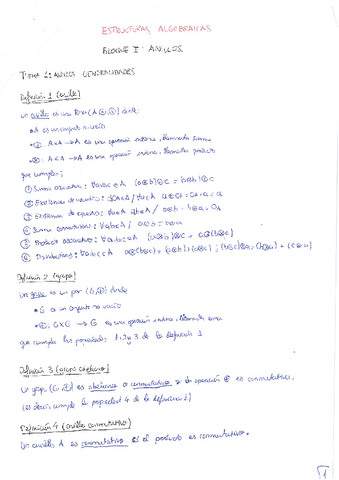 ESTRUCTURAS ALGEBRAICAS
BLOQUE I: ANILLOS
TEMA 1: ANILLOS GENERALIDADES
Definición 1 (anillo)
Un anillo es una terna (A,⊕,⊗) donde
• A es un conjunto no vacío
• ⊕: A×A → A es una operación interna, llamada suma
• ⊗: A×A → A es una operación interna, llamada producto
que cumplen:
① Suma asociativa: ∀a,b,c∈A (a⊕b)⊕c = a⊕(b⊕c)
② Existencia de neutro:
③ Existencia de opuesto: ∀a∈A ∃b∈A /
④ Suma conmutativa: ∀a,b∈A / a⊕b = b⊕a
⑤ Producto asociativo: ∀a,b,c∈A (a⊗b)⊗c = a⊗(b⊗c)
⑥ Distributiva: ∀a,b,c∈A
Definición 2 (grupo)
Un grupo es un par (G,⊕) donde
• G es un conjunto no vacío
• ⊕: G×G → G es una operación interna, llamada suma
que cumple las propiedades 1, 2 y 3 de la definición 1
Definición 3 (grupo abeliano)
Un grupo (G,⊕) es abeliano o conmutativo si la operación ⊕ es conmutativa,
(es decir, cumple la propiedad 4 de la definición 1)
Definición 4 (anillo conmutativo)
Un anillo A es conmutativo si el producto es conmutativo.
1